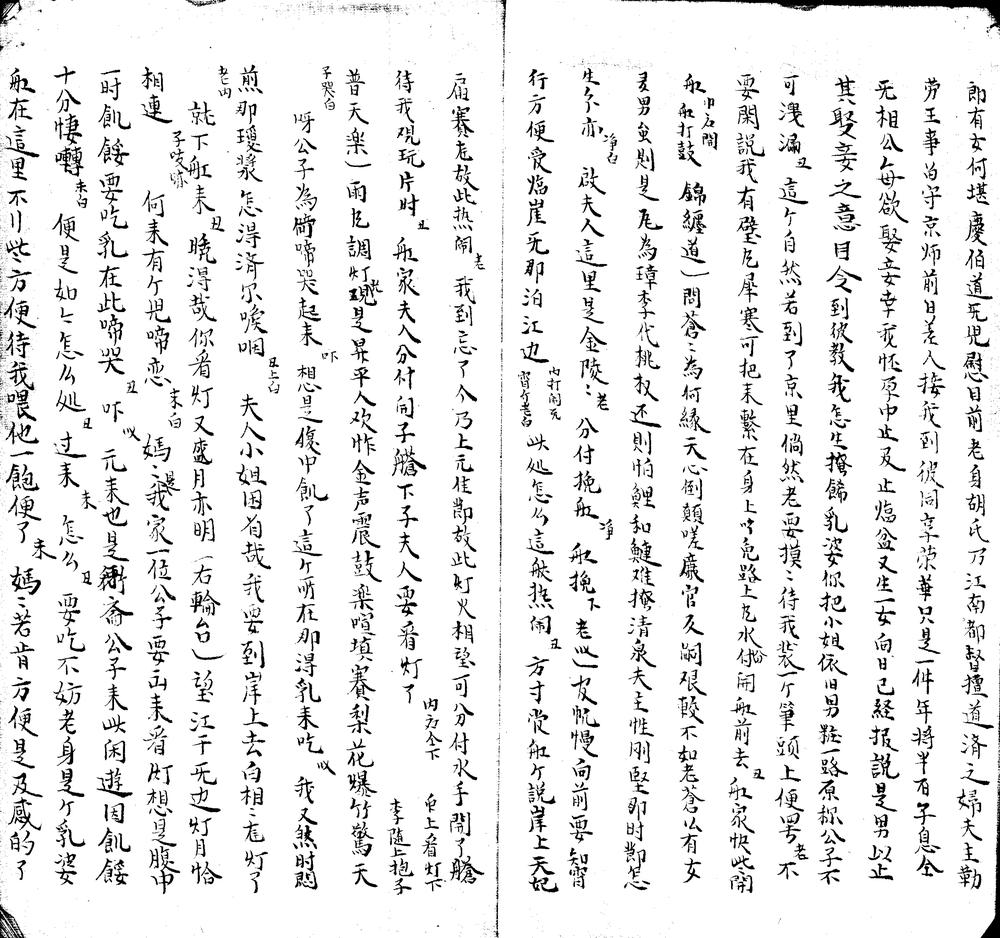 郎有女何堪慶伯道无児慰目前老身胡氏乃江南都督檀道済之婦夫主勤
劳王事旨守京师前日差人接我到彼同享荣華只是一件年將半百子息全
无相公每欲娶妾幸我怀孕中止及止临盆又生一女向日已経报説是男以止
其娶妾之意目今到彼教我怎生撡餙乳婆你把小姐依旧男粧一路原称公子不
可洩漏 丑 這ケ自然若到了京里倘然老要摸〻待我装一ケ筆頭上便罢 老 不
要閑説我有璧㐆犀寒可把来繫在身上 免路上㐆水 付開舡前去 丑 舡家快些開
舡 舡打鼓 錦纏道）問蒼〻為何縁天心倒顛嗟廉官反嗣艰較不如老蒼幺有女
灵男虽則是尾為璋李代桃权还則怕鯉和鰱难撡清泉夫主性刚堅那时莭怎
生尓亦 净白 啟夫人這里是金陵〻 老 分付挽舡 净 舡挽 下 老 把帆幔向前要知宵
行方便爱临崖无那泊江边 内打闹元宵ケ老白 此处怎么這般热闹 丑 方寸常舡ケ説岸上天妃
庙賽老故此热闹 老 我到忘了今乃上元佳莭故此灯火相望可分付水手開了艙
待我观玩片时 丑 舡家夫人分付開子艙 下子夫人要看灯了 内应介下 貞上看灯下 李随上抱子
普天楽）雨㐆調灯現是昇平人欢怍金声震鼓楽喧填賽梨花爆竹驚天
子哭白 呀公子為何啼哭起来 吓 想是腹中飢了這ケ所在那得乳来吃 我又煞时悶
煎那瓊漿怎得済尔喉咽 丑上白 夫人小姐困旨哉我要到岸上去白相〻尨灯了
老內 就下舡来 丑 晓得哉你看灯又盛月亦明（右輪台）望江干无边灯月恰
相連 子哭咏 何来有ケ児啼恋 末白 媽〻是我家一位公子要出来看灯想是腹中
一时飢餒要吃乳在此啼哭 丑 吓 元来也是衙斋公子来此闲遊因飢餒
十分悽囀 末白 便是如今怎么处 丑 过来 末 怎么 丑 要吃不妨老身是ケ乳婆
舡在這里不爿些方便待我喂他一飽便了 末 媽〻若肯方便是及感的了